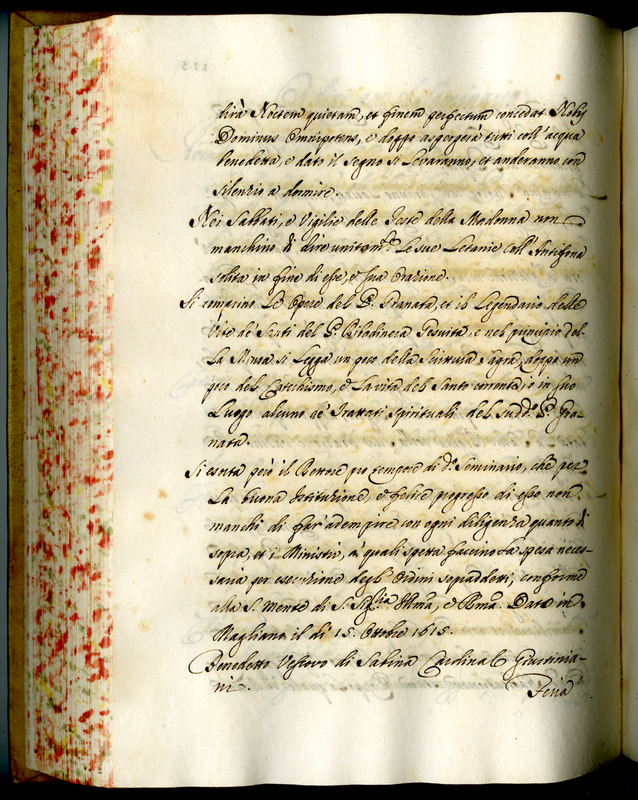 dirà Noctem quietam, et finem perfectum concedat Nobis
Dominus Omnipotens, e doppo aspergerà tutti coll' acqua
benedetta, e dato il segno si levaranno, et anderanno con
silenzio a dormire.
Nei Sabbati, e Vigilie delle Feste della Madonna non
manchino di dire unitam.te Le sue Letanie coll' Antifona
solita in fine di esse, e sua Orazione.
Si comprino Le Opere del P. Granata, et il Legendario delle
Vite de' Santi del P. Gesuita, e nel principio del-
La Mensa si Legga un poco della Scrittura Sagra, doppo un
poco del Catechismo, e La vita del Santo corrente, o in suo
Luogo alcuno de' Trattati Spirituali del sud.o P. Gra-
nata.
Si esorta però il Rettore pro tempore di d.o Seminario, che per
La buona Istituzione, e felice progresso di esso non
manchi di far' adempire con ogni diligenza quanto di
sopra, et i Ministri, a' quali spetta faccino La spesa neces-
saria per esecuzione degl' Ordini sopraddetti, conforme
alla S. Mente di S. Sig.ria Illma, e Rma. Dato in
Magliano il dì 15. Ottobre 1615.
Benedetto Vescovo di Sabina Cardinale Giustinia-
ni.
Feria